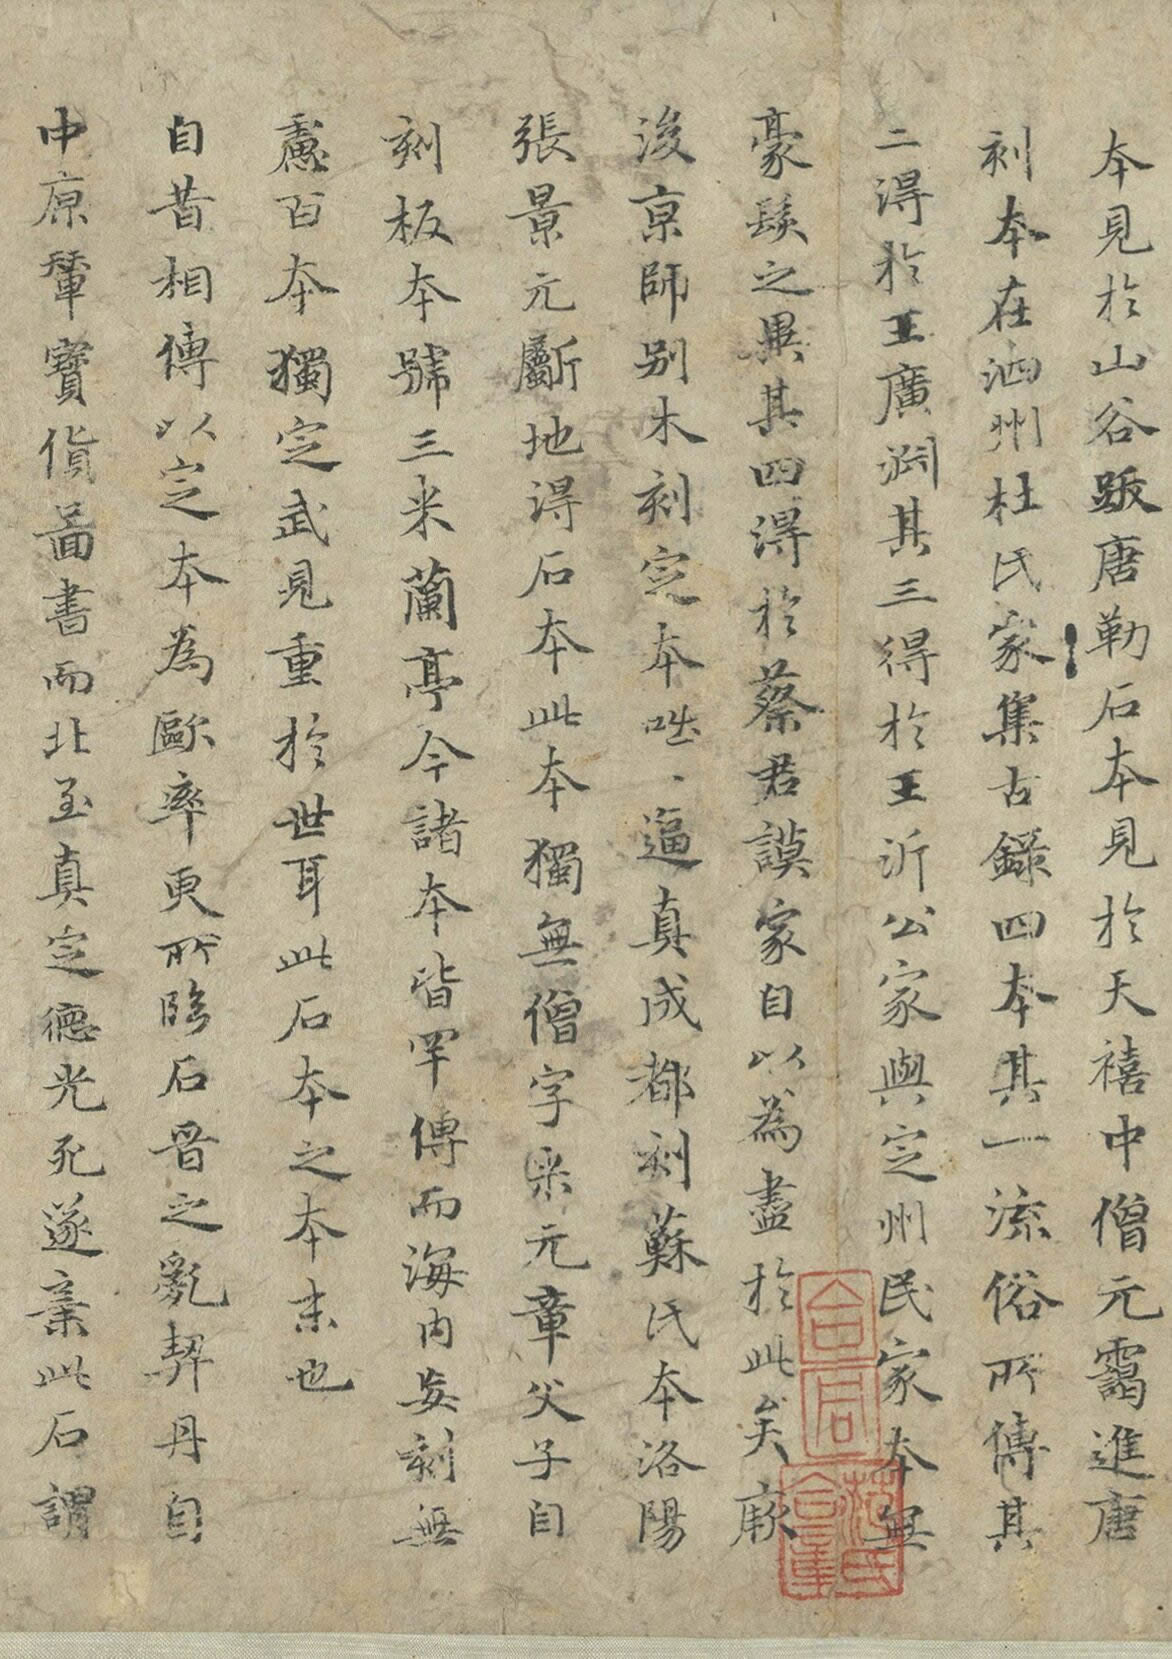 本見於山谷跋唐勒石本見於天禧中僧元靄進唐
刻本在泗州杜氏家集古錄四本其一流俗所傳其
二得於王廣淵其三得於王沂公家與定州民家本無
豪髮之異其四得於蔡君謨家自以為盡於此矣厥
後京師別木刻定本咄丶逼真成都刻蘇氏本洛陽
張景元斸地得石本此本獨無僧字米元章父子自
刻板本號三米蘭亭今諸本皆罕傳而海內妄刻無
慮百本獨定武見重於世耳此石本之本末也
自昔相傳以定本為歐率更所臨石晉之亂契丹自
中原輦寶貨圖書而北至真定德光死遂棄此石謂
合同